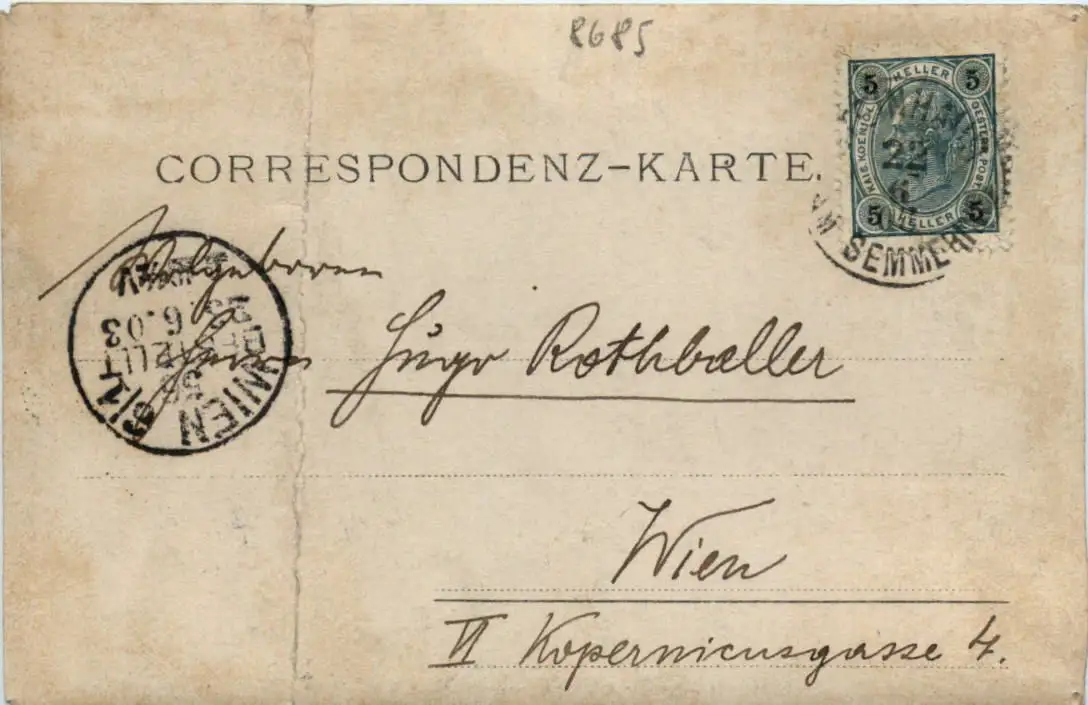 8685
5 HELLER 5
KAIS. KOENIGL. OESTERR. POST
5 HELLER 5
22
6
AM SEMMERING
CORRESPONDENZ-KARTE.
Wohlgeboren
Herrn Hugo Rothballer
WIEN
BESTELLT
6.03
Wien
VI Kopernicusgasse 4.